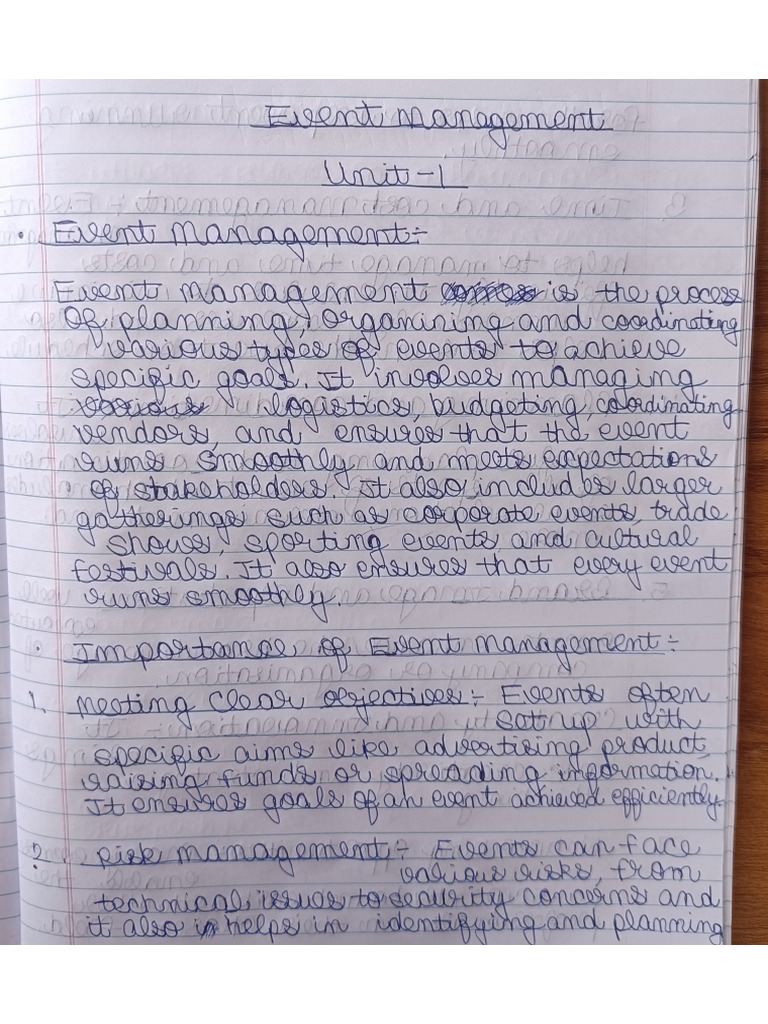 Event Management
Unit-1
• Event Management:-
Event management is the process
of planning, organizing and coordinating
various types of events to achieve
specific goals. It involves managing
logistics, budgeting, coordinating
vendors, and ensures that the event
runs smoothly and meets expectations
of stakeholders. It also includes larger
gatherings such as corporate events, trade
shows, sporting events and cultural
festivals. It also ensures that every event
runs smoothly.
• Importance of Event Management:-
1. Meating Clear objectives:- Events often
set up with
specific aims like advertising product,
raising funds or spreading information.
It ensures goals of an event achieved efficiently.
2. Risk Management:- Events can face
various risks, from
technical issues to security concerns and
it also helps in identifying and planning